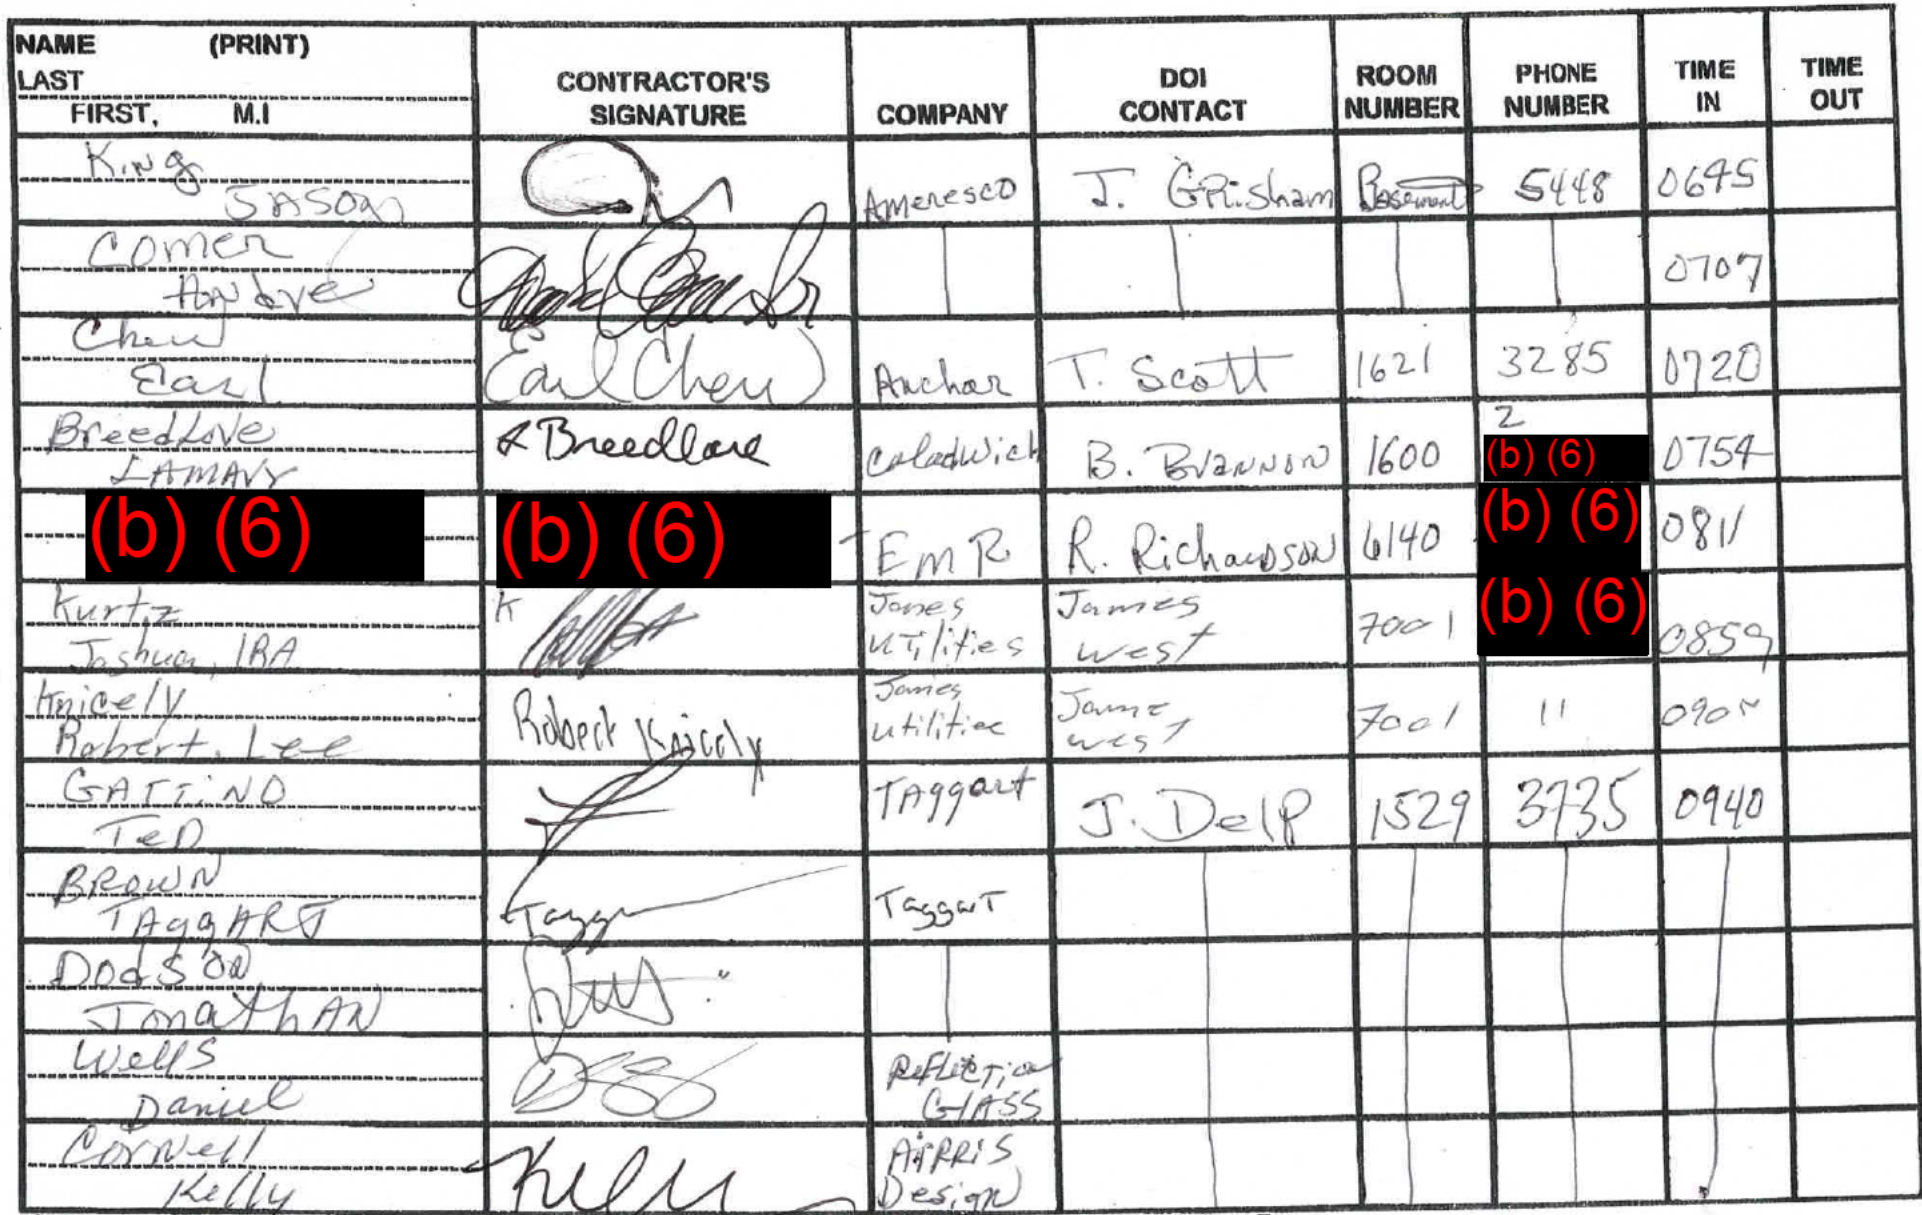 NAME (PRINT)
LAST
FIRST, M.I
CONTRACTOR'S
SIGNATURE
COMPANY
DOI
CONTACT
ROOM
NUMBER
PHONE
NUMBER
TIME
IN
TIME
OUT
King
JASON
Ameresco
J. GRisham
Basement
5448
0645
Comer
Andre
0707
Chew
Earl
Earl Chew
Anchor
T. Scott
1621
3285
0720
BreedLove
LAMAVY
Breedlove
B. BrANNON
1600
2
(b) (6)
0754
(b) (6)
(b) (6)
EMR
R. Richardson
6140
(b) (6)
0811
Kurtz
Joshua, IRA
K
Jones
utilities
James
west
7001
(b) (6)
0859
Knicely
Robert, Lee
Robert Knicely
Jones
utilities
James
west
7001
11
GATTiNO
TeD
TAggart
J. Delp
1529
3735
0940
BROWN
TAggART
Tagg
TaggarT
Dodson
JonathAN
Wells
Daniel
ReflecTion
GlASS
Cornell
Kelly
Design